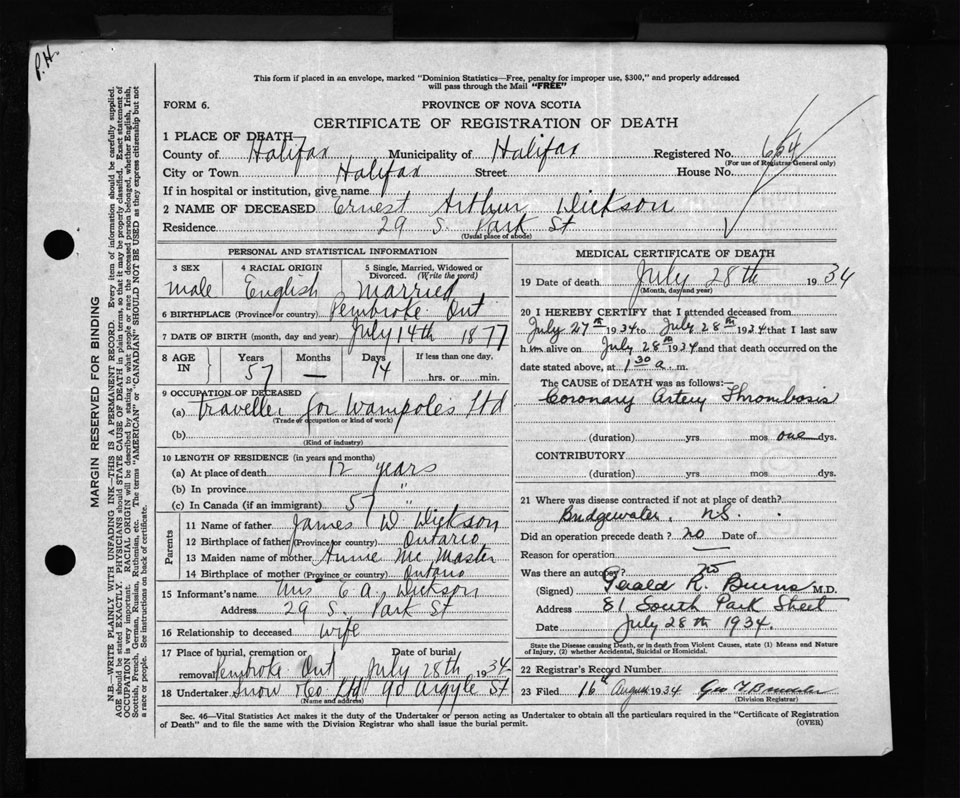 P.H.
This form if placed in an envelope, marked "Dominion Statistics—Free, penalty for improper use, $300," and properly addressed
will pass through the Mail "FREE"
FORM 6.
PROVINCE OF NOVA SCOTIA
CERTIFICATE OF REGISTRATION OF DEATH
1 PLACE OF DEATH
County of Halifax Municipality of Halifax Registered No. 664
(For use of Registrar General only)
City or Town Halifax Street House No.
If in hospital or institution, give name
2 NAME OF DECEASED Ernest Arthur Dickson
Residence 29 S. Park St
(Usual place of abode)
PERSONAL AND STATISTICAL INFORMATION
3 SEX 4 RACIAL ORIGIN 5 Single, Married, Widowed or
Divorced. (Write the word)
Male English Married
6 BIRTHPLACE (Province or country) Pembroke Ont
7 DATE OF BIRTH (month, day and year) July 14th 1877
8 AGE IN Years Months Days If less than one day,
57 — 14 hrs. or min.
9 OCCUPATION OF DECEASED
(a) Traveller for Wampoles Ltd
(Trade or occupation or kind of work)
(b)
(Kind of industry)
10 LENGTH OF RESIDENCE (in years and months)
(a) At place of death 12 years
(b) In province "
(c) In Canada (if an immigrant) 57 "
Parents
11 Name of father James W Dickson
12 Birthplace of father (Province or country) Ontario
13 Maiden name of mother Annie McMaster
14 Birthplace of mother (Province or country) Ontario
15 Informant's name Mrs E A Dickson
Address 29 S. Park St
16 Relationship to deceased Wife
17 Place of burial, cremation or Date of burial
removal Pembroke Ont July 28th 1934
18 Undertaker Snow & Co Ltd 90 Argyle St
(Name and address)
MEDICAL CERTIFICATE OF DEATH
19 Date of death July 28th 1934
(Month, day and year)
20 I HEREBY CERTIFY that I attended deceased from
July 27th 1934 to July 28th 1934 that I last saw
him alive on July 28th 1934 and that death occurred on the
date stated above, at 1 30 a. m.
The CAUSE of DEATH was as follows:—
Coronary Artery Thrombosis
(duration) yrs mos one dys.
CONTRIBUTORY
(duration) yrs. mos dys.
21 Where was disease contracted if not at place of death?
Bridgewater, N.S.
Did an operation precede death? no Date of
Reason for operation
Was there an autopsy? no
(Signed) Gerald R. Burns M.D.
Address 81 South Park Street
Date July 28th 1934.
State the Disease causing Death, or in death from Violent Causes, state (1) Means and Nature
of Injury, (2) whether Accidental, Suicidal or Homicidal.
22 Registrar's Record Number
23 Filed 16th August 1934
(Division Registrar)
Sec. 46—Vital Statistics Act makes it the duty of the Undertaker or person acting as Undertaker to obtain all the particulars required in the "Certificate of Registration
of Death" and to file the same with the Division Registrar who shall issue the burial permit.
(OVER)
MARGIN RESERVED FOR BINDING
N.B.—WRITE PLAINLY WITH UNFADING INK—THIS IS A PERMANENT RECORD. Every item of information should be carefully supplied.
AGE should be stated EXACTLY. PHYSICIANS should STATE CAUSE OF DEATH in plain terms, so that it may be properly classified. Exact statement of
OCCUPATION is very important. RACIAL ORIGIN will be described by stating to what people or race the deceased person belonged, whether English, Irish,
Scottish, French, German, Russian, Ruthenian, etc. The terms "AMERICAN" or "CANADIAN" SHOULD NOT BE USED as they express citizenship but not
a race or people. See instructions on back of certificate.